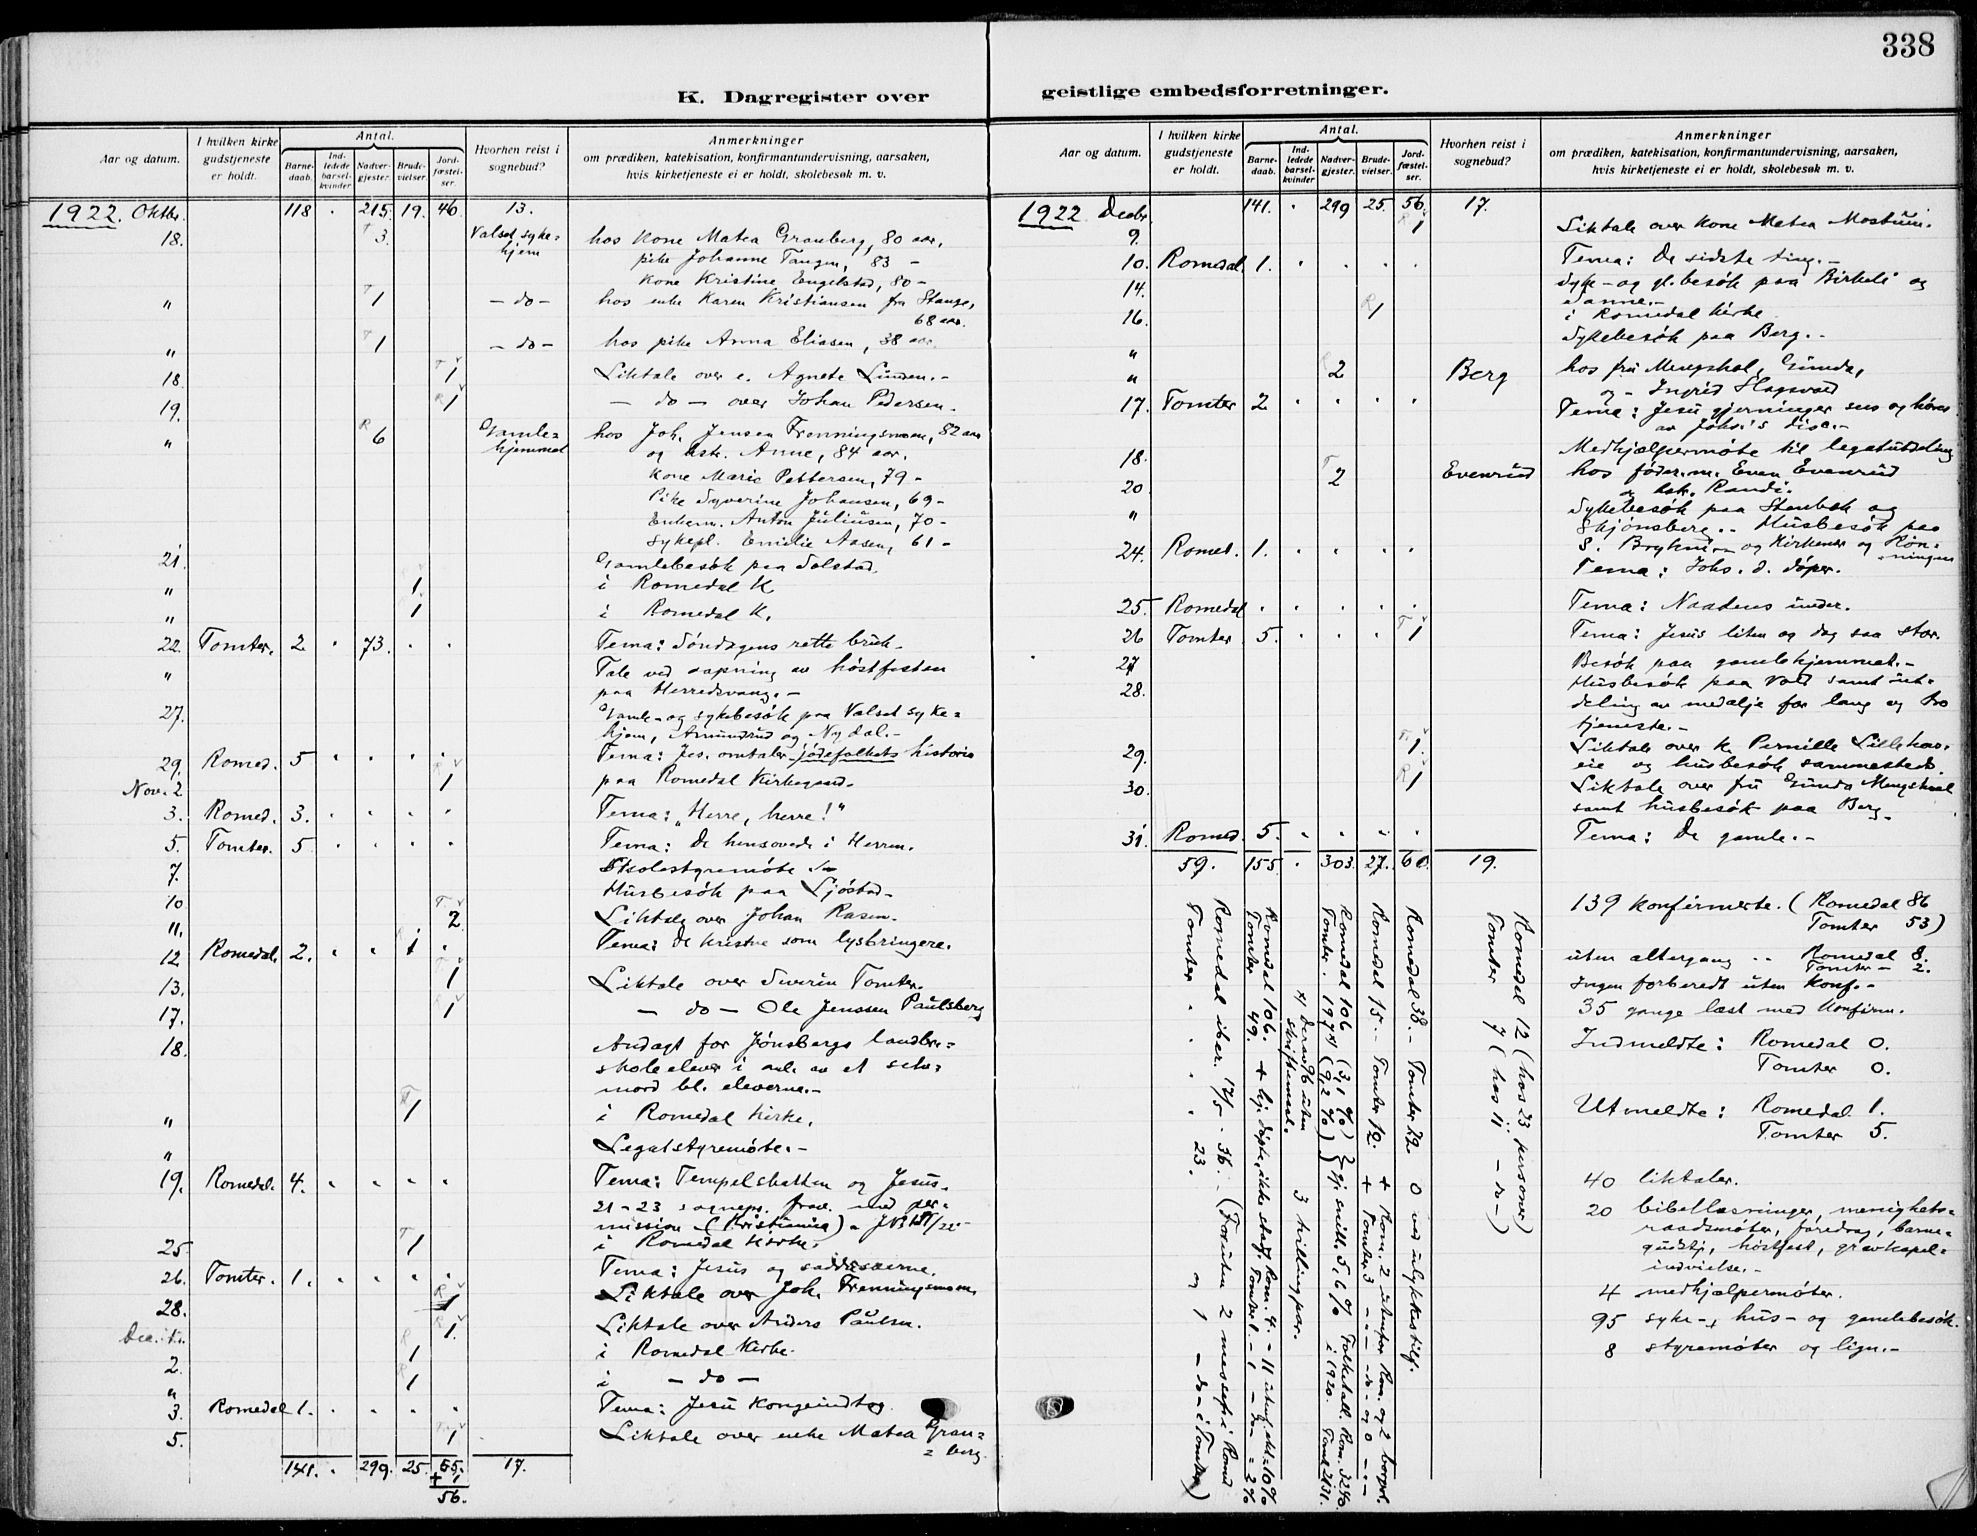 338
K. Dagregister over geistlige embedsforretninger.
Aar og datum.
I hvilken kirke gudstjeneste er holdt.
Antal.
Barnedaab.
Indledede barselkvinder
Nadvergjester.
Brudevielser.
Jordfæstelser.
Hvorhen reist i sognebud?
Anmerkninger
om prædiken, katekisation, konfirmantundervisning, aarsaken,
hvis kirketjeneste ei er holdt, skolebesøk m. v.
1922. Oktbr. 118 . 215. 19. 46. 13.
18. T 3. Valset sykehjem hos kone Matea Granberg, 80 aar.
pike Johanne Tangen, 83 -
kone Kristine Engelstad, 80 -
" T 1 - do - hos enke Karen Kristiansen fra Stange,
68 aar.
" T 1 - do - hos pike Anna Eliasen, 38 aar.
18. T 1 Liktale over e. Agnete Linden. -
19. R 1 - do - over Johan Pedersen.
" R 6 Gamlehjemmet hos Joh. Jensen Frenningsmoen, 82 aar
og hst. Anne, 84 aar.
Kone Marie Pettersen, 79 -
Pike Syverine Johansen, 69 -
Enkem. Anton Juliusen, 70 -
Sykepl. Emilie Aasen, 61 -
21. Gamlebesøk paa Solstad.
" 1. i Romedal K
" 1 i Romedal K.
22. Tomter. 2 . 73. . . Tema: Søndagens rette bruk.
" Tale ved aapning av høstfesten
paa Herredsvang. -
27. Gamle- og sykebesøk paa Valset syke=
hjem, Amundrud og Nydal. -
29. Romed. 5 . . . . Tema: Jes. omtaler jødefolkets historie
Nov. 2 R 1 paa Romedal Kirkegaard.
3. Romed. 3. . . . . Tema: "Herre, herre!"
5. Tomter. 5 . . . . Tema: De hensovede i Herren.
7. Skolestyremøte
10. Husbesøk paa Ljøstad -
11. T. 2 Liktale over Johan Rasen.
12 Romedal. 2. . . 1 . Tema: De kristne som lysbringere.
13. T 1 Liktale over Severin Tomter.
17. R 1 - do - Ole Jenssen Paulsberg
18. Andagt for Jønsbergs landbr.=
skoleelever i anl. av et selv=
mord bl. eleverne. -
" 1 i Romedal Kirke.
" Legatstyremøte. -
19. Romedal. 4. . . . . Tema: Tempelskatten og Jesus.
21 - 23 sognepr. frav. med per=
mission (Kristiania)
25. T 1 i Romedal Kirke.
26. Tomter. 1. . . . . Tema: Jesus og saddusæerne.
28. R 1 Liktale over Joh. Frenningsmoen.
Dec. 1. R 1. Liktale over Anders Paulsen.
2. R 1 i Romedal Kirke.
" R 1 i - do -
3. Romedal 1. . . . . Tema: Jesu Kongeindtog.
5. 1 Liktale over enke Matea Gran=
= berg.
141. . 299. 25. 55. 17.
+ 1
56.
Aar og datum.
I hvilken kirke gudstjeneste er holdt.
Antal.
Barnedaab.
Indledede barselkvinder
Nadvergjester.
Brudevielser.
Jordfæstelser.
Hvorhen reist i sognebud?
Anmerkninger
om prædiken, katekisation, konfirmantundervisning, aarsaken,
hvis kirketjeneste ei er holdt, skolebesøk m. v.
1922 Decbr. 141. . 299 25. 56. 17.
9. R 1 Liktale over kone Matea Mostuen.
10. Romedal. 1. . . . . Tema: De sidste ting. -
14. Syke- og gl. besøk paa Birkeli og
Sanne. -
16. R 1 i Romedal Kirke
" Sykebesøk paa Berg. -
" 2 Berg hos fru Mengshol, Gunda,
og - Ingrid Hagsvold
17. Tomter 2 . . . . Tema: Jesu gjerninger sees og høres
av Johs.'s disc. -
18. Medhjælpermøte til legatutdeling
20 T 2 Evenrud hos føder.m. Even Evenrud
og hst. Randi.
" Sykebesøk paa Stenbæk og
Skjønsberg. - Husbesøk paa
S. Bryhni - og Kirkener og Røn=
ningen
24. Romed. 1. . . . . Tema: Johs. d. døper.
25. Romedal . . . . . Tema: Naadens under.
26 Tomter 5. . . . T 1 Tema: Jesus liten og dog saa stor.
27 Besøk paa gamlehjemmet. -
28. Husbesøk paa Vold samt ut=
deling av medalje for lang og tro
tjeneste. -
29. T 1. Liktale over k. Pernille Lillehov=
eie og husbesøk sammesteds.
30. R 1 Liktale over fru Gunda Mengshoel
samt husbesøk paa Berg.
31. Romed. 5. . . . . Tema: De gamle. -
59. 155 . 303. 27. 60. 19.
Romedal iber. 12/5 . 36. - (Foruten 2 messefri i Romd
Tomter . . . . 23. og 1 - do - i Tomter)
Romedal 106. + hj. døpte, ikke stadf. Rom. 4. - 11 = 10%
Tomter 49. Tomter 1 - 1 - do - = 2%
x) derav 96 uten skriftemaal.
3 tvillingpar.
Romedal 106 (3,1 %) } gj.snitl. 5,6 % Folketall. Rom. 3240.
Tomter. 197 x) (9,2 %) i 1920. Tomt 2131.
Romedal 15 - Tomter 12. + Rom. 2 utenfor Rom. og 2 borgerl.
+ Tomter 3 - " - - do - og 0 - " -
Romedal 38. - Tomter 22. 0 ved ulykkestilf.
Romedal 12 (hos 23 personer)
Tomter 7 (hos 11 - do -)
139 konfirmerte. (Romedal 86
Tomter 53)
uten altergang .. Romedal 8.
Tomter - 2.
Ingen forberedt uten konf. -
35 gange læst med Konfirm.
Indmeldte: Romedal 0.
Tomter 0.
Utmeldte: Romedal 1.
Tomter 5.
40 liktaler.
20 bibellæsninger, menighets=
raadsmøter, foredrag, barne=
gudstj., høstfest, gravkapel=
indvielse. -
4 medhjælpermøter.
95 syke-, hus- og gamlebesøk.
8 styremøter og lign. -